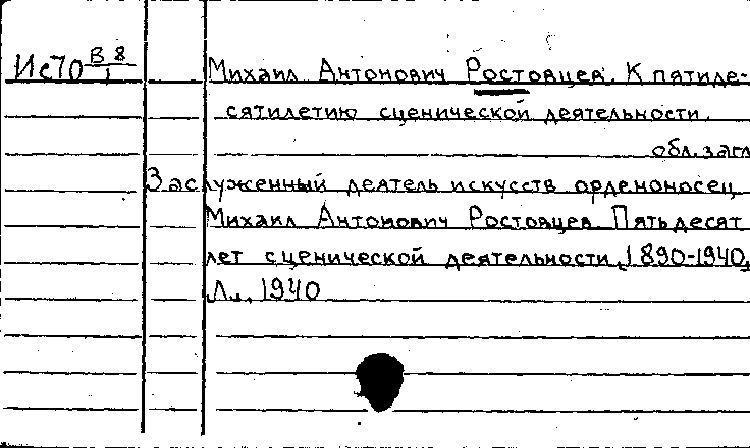 Ис70 В 8/1 Михаил Антонович Ростовцев. К пятиде-
сятилетию сценической деятельности.
обл. загл
Заслуженный деятель искусств орденоносец
Михаил Антонович Ростовцев. Пятьдесят
лет сценической деятельности, 1890-1940,
Л., 1940